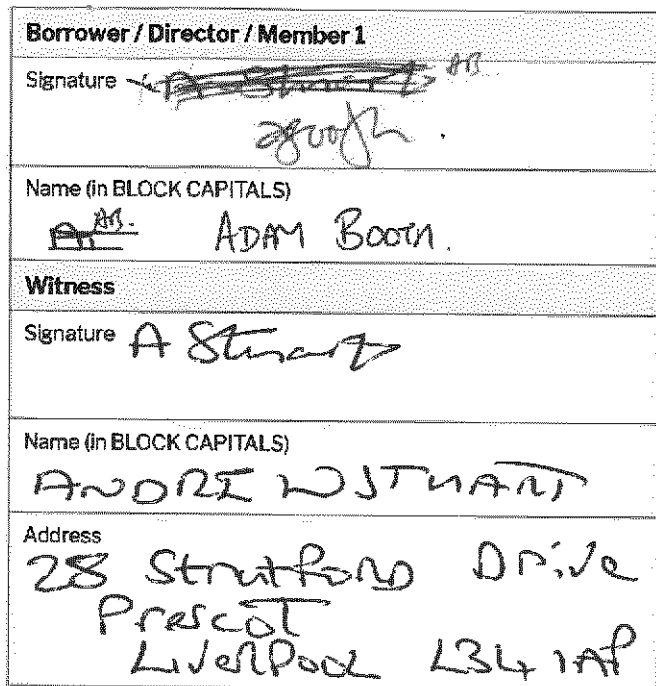 Borrower / Director / Member 1
Signature A Stuart AB
Name (in BLOCK CAPITALS)
A AB. ADAM BOOTH.
Witness
Signature A Stuart
Name (in BLOCK CAPITALS)
ANDREW STUART
Address
28 Stratford Drive
Prescot
Liverpool L34 1AP